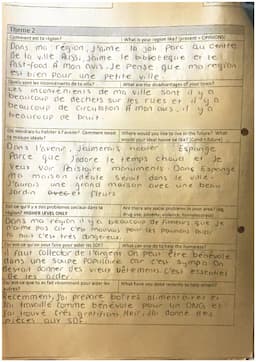 Thème 2
Comment est ta région? What is your region like? (present + OPINIONS)
Dans ma région, j'aime la joli Parc au Centre
de la ville Aussi, j'aime le bibliotèque et le
fast-food A mon avis. Je pense que ma région
est bien pour une petite ville.
Quels sont les inconvénients de ta ville? What are the disadvantages of your town?
Les inconvénients de ma ville sont il y a
beaucoup de dechets sur les rues et il y a
beaucoup de circulation A mon avis, il y a
beaucoup de bruit.
Où voudrais-tu habiter à l'avenir? Comment serait ta maison idéale? Where would you like to live in the future? What would your ideal house be like? (Cond + future)
Dans l'avenir, J'aimerais habiter Espagne
Parce que J'adore le temps chaud et Je
veux voir l'histoire monuments. Dans Espagne
ma maison idéale serait dans le ville.
J'aurais une grand maison avec une beau
Jardin fleurs
Est-ce qu'il y a des problèmes sociaux dans ta région? HIGHER LEVEL ONLY Are there any social problems in your area?
Dans ma région il y a beaucoup de fumeurs que je
n'aime pas car c'est mauvais pour les poumons Aussi
la nuit c'est très dangereux.
Qu'est-ce qu'on peut faire pour aider les SDF? What can you do to help the homeless?
Il faut collecter de l'argent On peut être bénévole
dans une soupe Populaire car c'est sympa On
devrait donner des vieux bâtiments. C'est essentiel
de les aider.
Qu'est-ce que tu as fait récemment pour aider les What have you done recently to help
Récemment, j'ai préparé boîtes alimentaires et
j'ai travaillé comme bénévole pour un ONG et
J'ai trouvé très gentil Hier, J'ai donné des
pièces aux SDF.